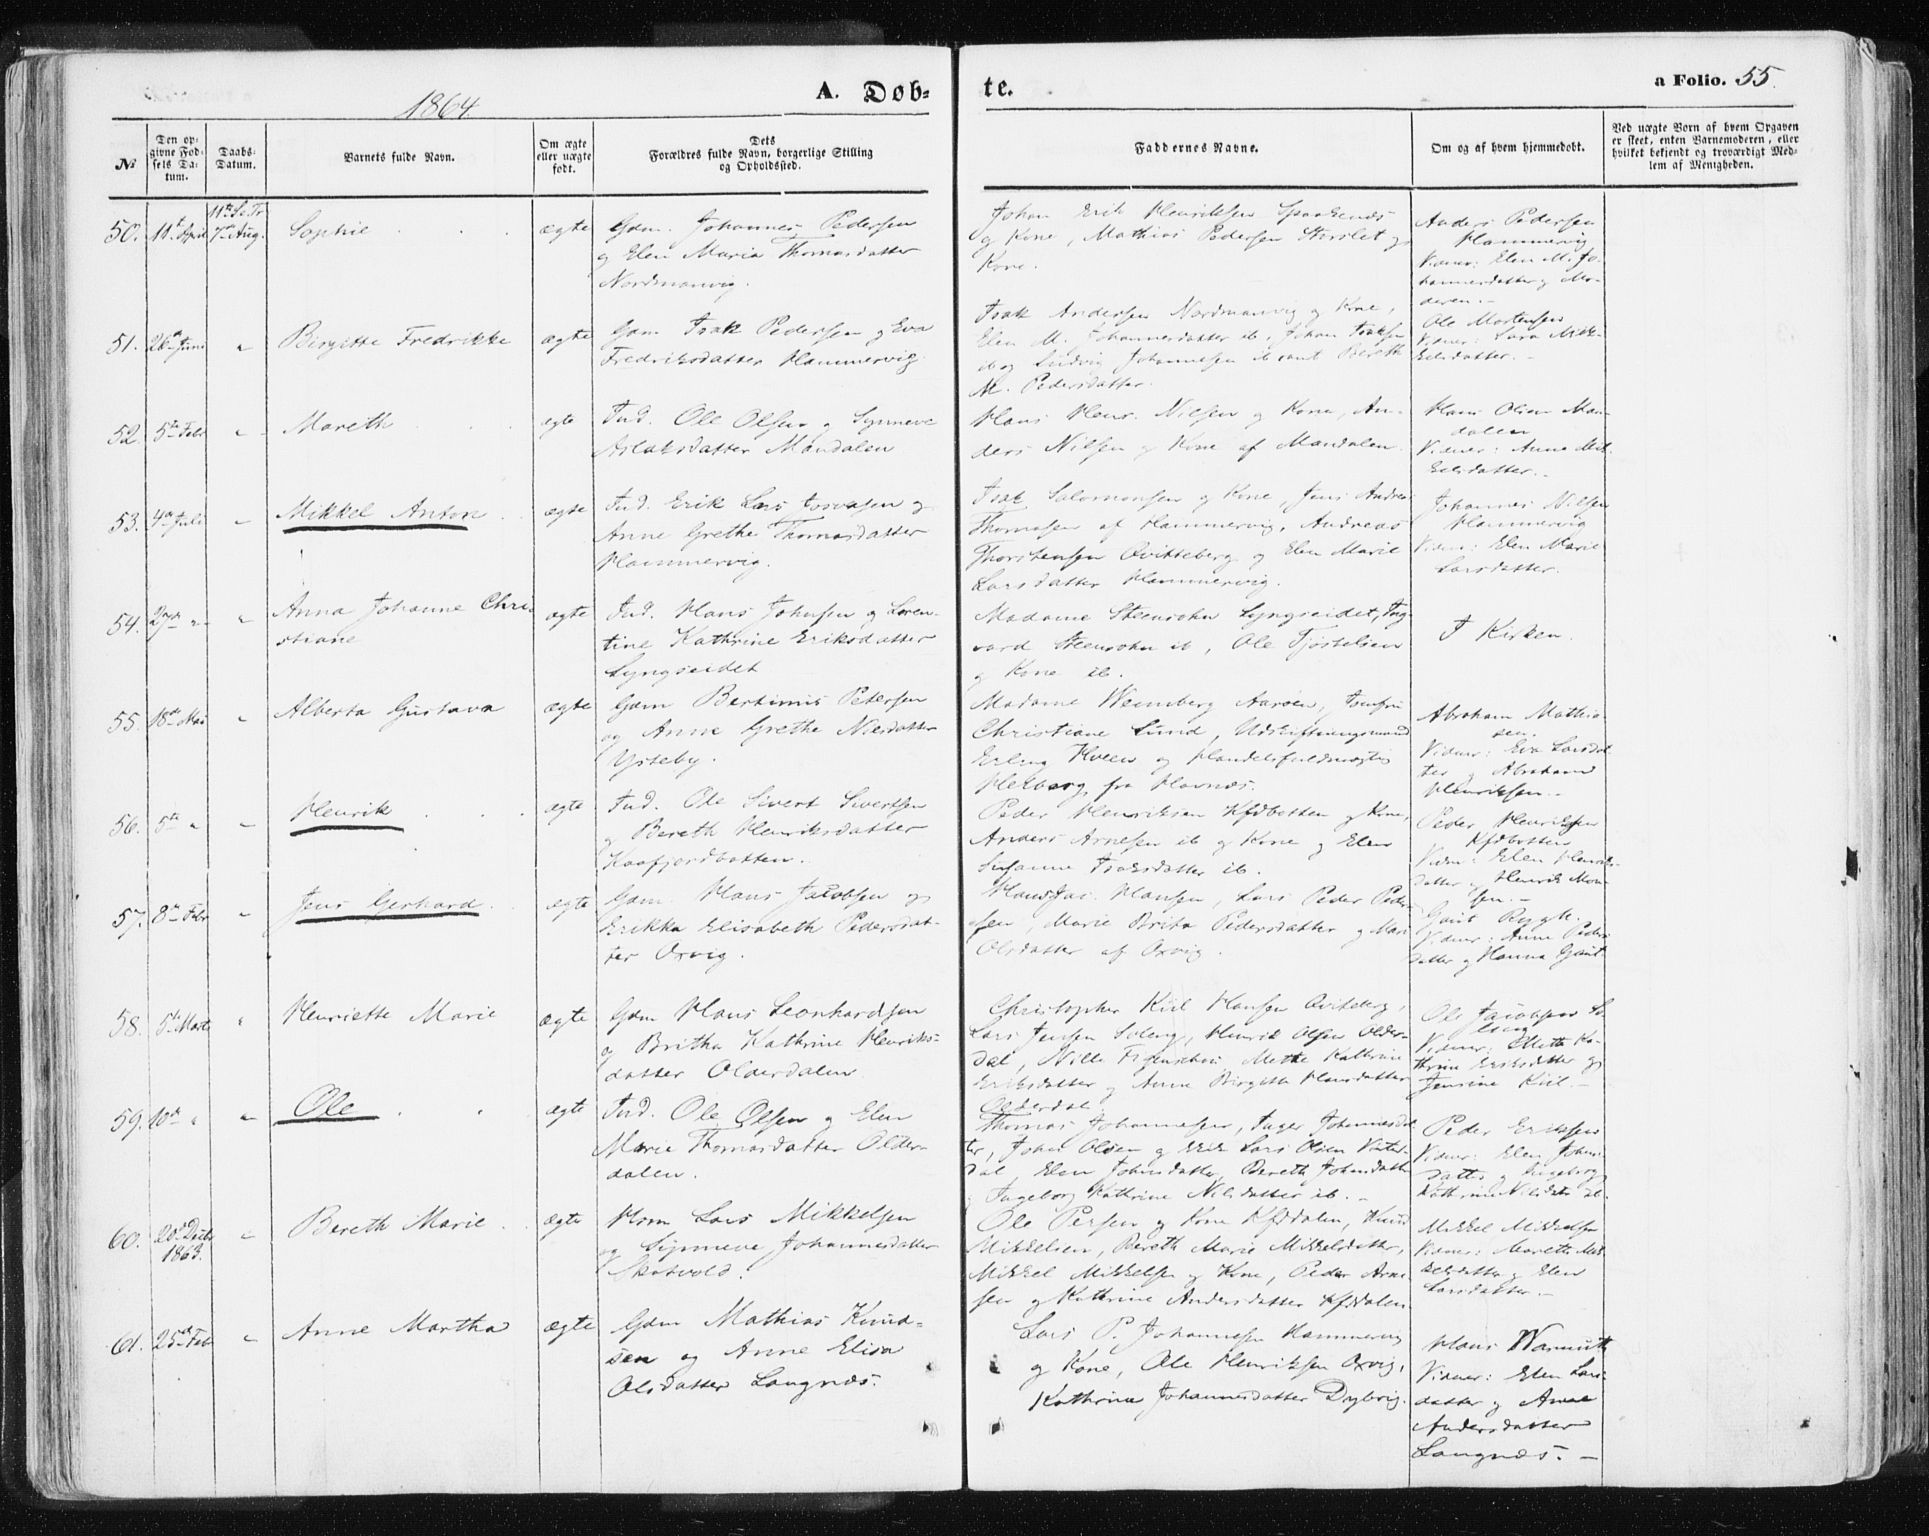 1864
A. Døb-
te.
a Folio. 55.
No
Den op-
givne Fød-
sels Da-
tum.
Daabs-
Datum.
Barnets fulde Navn.
Om ægte
eller uægte
født.
Dets
Forældres fulde Navn, borgerlige Stilling
og Opholdssted.
Faddernes Navne.
Om og af hvem hjemmedøbt.
Ved uægte Børn af hvem Opgaven
er skeet, enten Barnemoderen, eller
hvilket bekjendt og troværdigt Med-
lem af Menigheden.
50. 11te April
11te S. e. Tr.
7de Aug.
Sophie
ægte
Gdm. Johannes Pedersen
og Elen Maria Thomasdatter
Nordmanvig.
Johan Erik Henriksen Spaakenæs
og Kone, Mathias Pedersen Storslet og
Kone.
Anders Pedersen
Hammervig
Vidner: Elen M. Jo-
hannesdatter og Mo-
deren.-
51. 26de Juni "
Birgitte Fredrikke
ægte
Gdm Isak Pedersen og Eva
Fredriksdatter Hammervig.
Isak Andersen Nordmanvig og Kone,
Elen M. Johannesdatter ib, Johan Isaksen
ib og Ludvig Johannesen ib samt Bereth
M. Pedersdatter.
Ole Mortensen
Vidner: Lara Mik-
kelsdatter.-
52. 5te Febr "
Mareth
ægte
Ind. Ole Olsen og Synneve
Aslaksdatter Mandalen
Hans Henr. Nilsen og Kone, An-
ders Nilsen og Kone af Mandalen.
Hans Olsen Man-
dalen
Vidner: Anne Mik-
kelsdatter.-
53. 4de Juli "
Mikkel Anton
ægte
Ind. Erik Lars Josvasen og
Anne Grethe Thomasdatter
Hammervig.
Isak Salomonsen og Kone, Jens Andreas
Thomasen af Hammervig, Andreas
Thorstensen Qvitteberg og Elen Marie
Larsdatter Hammervig.
Johannes Nilsen
Hammervig
Vidner: Elen Marie
Larsdatter.
54. 27de " "
Anna Johanne Chri-
stiane
ægte
Ind. Hans Johnsen og Loren-
tine Kathrine Eriksdatter
Lyngseidet
Madame Steensohn Lyngseidet, Ing-
vard Steensohn ib, Ole Fjostelsen
og Kone ib.
I Kirken.
55. 18de Mai "
Alberta Gustava
ægte
Gdm Bertinus Petersen
og Anne Grethe Nilsdatter
Ysteby.
Madame Wennberg Aarøen, Jomfru
Christiane Lund, Udskiftningsmand
Erling Hveen og Handelsfuldmægtig
Helberg fra Havnæs.
Abraham Mathia-
sen.
Vidner: Eva Larsdat-
ter og Abraham
Henriksen.-
56. 5te " "
Henrik
ægte
Ind. Ole Sivert Sivertsen
og Bereth Henriksdatter
Kaafjordbotten.
Peder Henriksen Kfdbotten og Kone,
Anders Arnesen ib og Kone og Elen
Susanne Isaksdatter ib.
Peder Henriksen
Kfdbotten
Vidn: Elen Henriks-
datter og Henrik Mon-
sen.-
57. 8de Febr "
Jens Gerhard
ægte
Gdm. Hans Jacobsen og
Erikka Elisabeth Pedersdat-
ter Oxvig.
Hans Jac. Hansen, Lars Peder Peder-
sen, Marie Brita Pedersdatter og Mari
Olsdatter af Oxvig.
Gjært Rygh.
Vidner: Anne Peders-
datter og Hanna Gjært
58. 5te Marts "
Henriette Marie
ægte
Gdm Hans Leonhardsen
og Britha Kathrine Henriks-
datter Olderdalen
Christopher Kiil Hansen Qviteberg,
Lars Jensen Soleng, Henrik Olsen Older-
dal, Nille Mette Kathrine
Eriksdatter og Anne Birgitta Hansdatter
Olderdal
Ole Jacobsen So-
leng
Vidner: Mette Ka-
thrine Eriksdatter og
Jensine Kiil.-
59. 10de " "
Ole
ægte
Ind. Ole Olsen og Elen
Marie Thomasdatter Older-
dalen.
Thomas Johannesen, Inger Johannesdat-
ter, Johan Olsen og Erik Lars Olsen Vatter-
dal, Elen Johnsdatter, Bereth Johansdatter
og Ingeborg Kathrine Nilsdatter ib.-
Peder Eriksen
Vidner: Elen Johns-
datter og Ingeborg
Kathrine Nilsdtr ib.
60. 20de Decbr
1863. "
Bereth Marie
ægte
Hsm Lars Mikkelsen
og Synneve Johannesdatter
Skatvold.
Ole Persen og Kone Kfddalen, Knud
Mikkelsen, Bereth Marie Mikkelsdatter,
Mikkel Mikkelsen og Kone, Peder Arne-
sen og Kathrine Andersdatter Kfddalen.
Mikkel Mikkelsen
Vidner: Mareth Mik-
kelsdatter og Elen
Larsdatter.-
61. 25de Feb "
Anne Martha
ægte
Gdm Mathias Knud-
sen og Anne Elisa
Olsdatter Langnæs.
Lars P. Johannesen Hammervig
og Kone, Ole Henriksen Oxvig,
Kathrine Johannesdatter Dybvig.
Hans Warmuth
Vidner: Elen Lars-
datter og Anne
Andersdatter
Langnæs.-